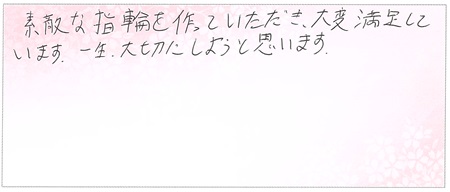 素敵な指輪を作っていただき、大変満足して
います。一生、大切にしようと思います。